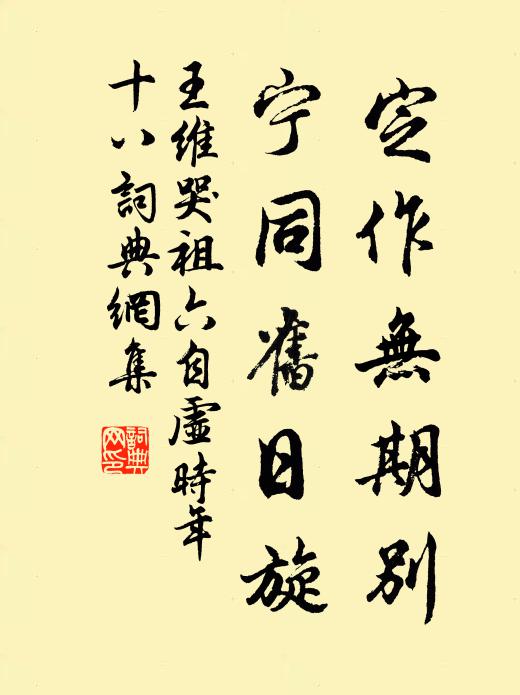 定作無期別
宁同舊日旋
王維哭祖六自虛時年
十八詞典網集
詞典
网印